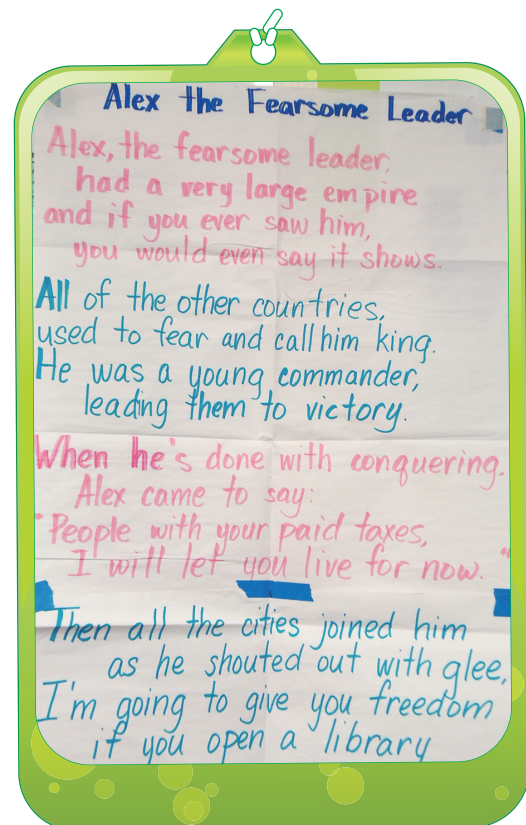 Alex the Fearsome Leader
Alex, the fearsome leader,
had a very large empire
and if you ever saw him,
you would even say it shows.
All of the other countries,
used to fear and call him king.
He was a young commander,
leading them to victory.
When he's done with conquering.
Alex came to say:
"People with your paid taxes,
I will let you live for now."
Then all the cities joined him
as he shouted out with glee,
I'm going to give you freedom
if you open a library